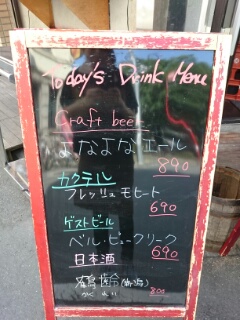 Today's Drink Menu
Craft beer
よなよなエール
890
カクテル
フレッシュモヒート
690
ゲストビール
ベル・ビュークリーク
690
日本酒
鶴齢
かくれい
800